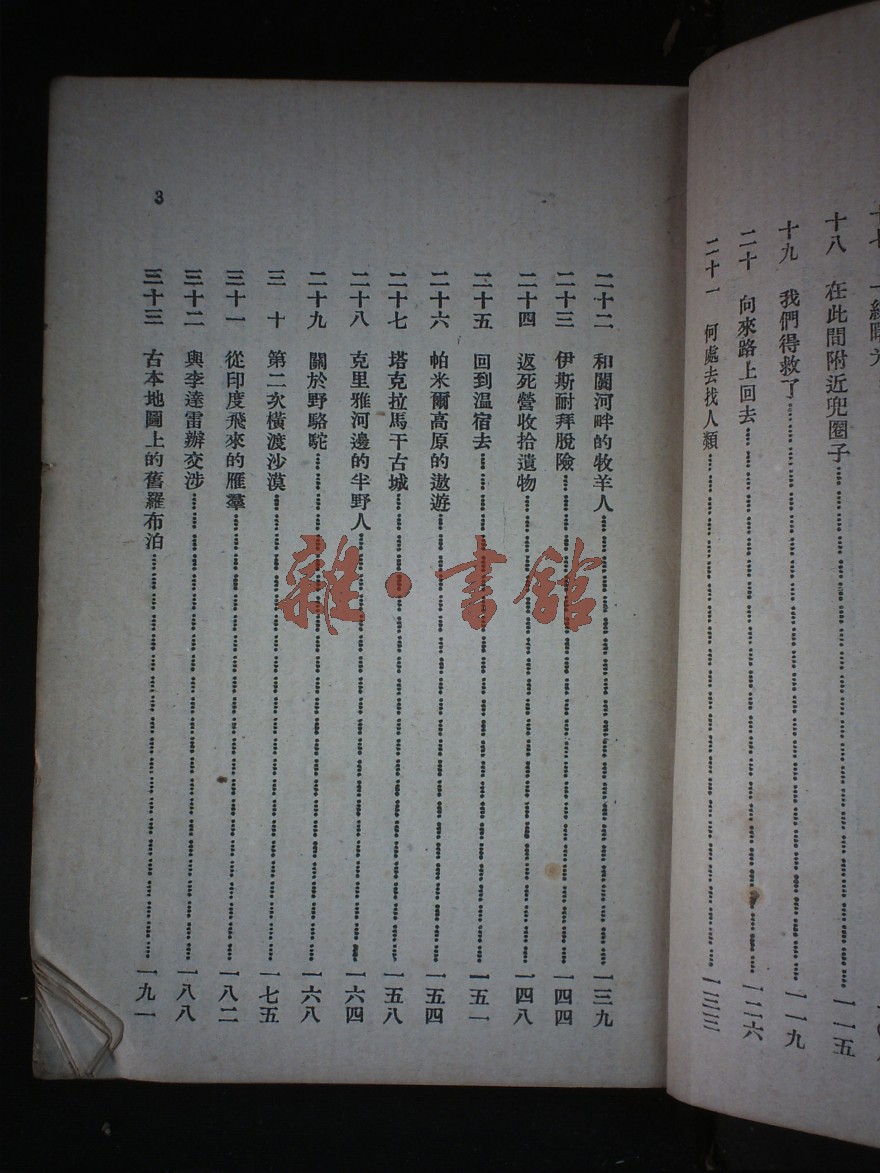 十八 在此間附近兜圈子 一一五
十九 我們得救了 一一九
二十 向來路上回去 一二六
二十一 何處去找人類 一三三
二十二 和闐河畔的牧羊人 一三九
二十三 伊斯耐拜脫險 一四四
二十四 返死營收拾遺物 一四八
二十五 回到温宿去 一五一
二十六 帕米爾高原的遨遊 一五四
二十七 塔克拉馬干古城 一五八
二十八 克里雅河邊的半野人 一六四
二十九 關於野駱駝 一六八
三十 第二次橫渡沙漠 一七五
三十一 從印度飛來的雁羣 一八二
三十二 與李達雷辦交涉 一八八
三十三 古本地圖上的舊羅布泊 一九一
3
雜·書館